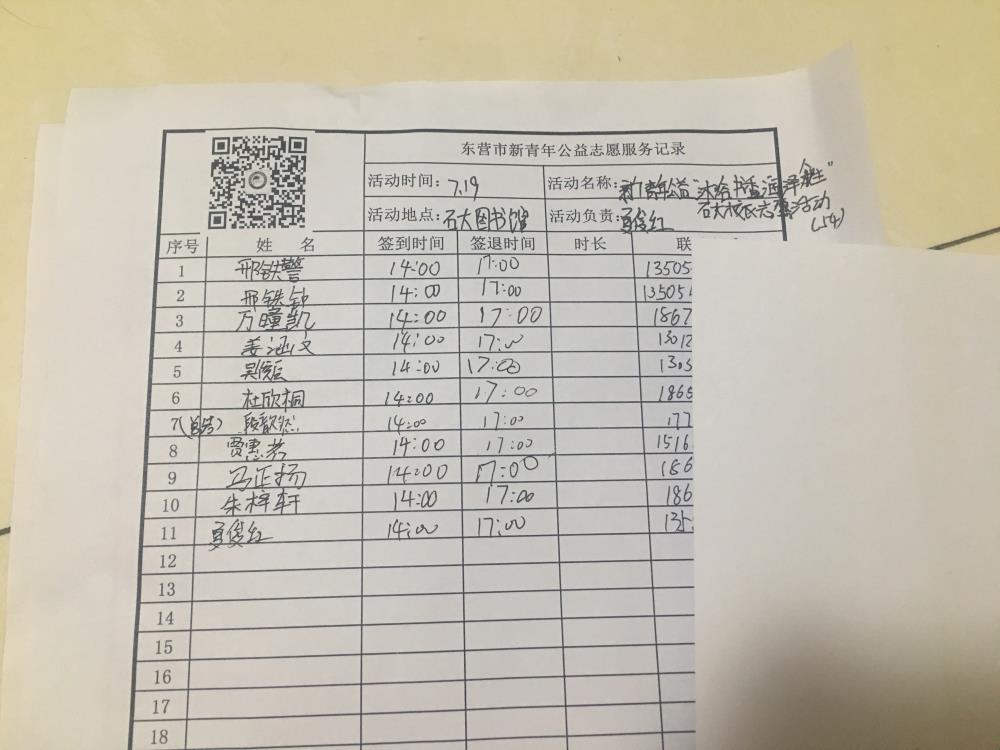 东营市新青年公益志愿服务记录
活动时间：7.19 活动名称：新青年公益"沐浴书香 润泽人生"
石大校长志愿活动
(54)
活动地点：石大图书馆 活动负责：夏俊红
序号 姓 名 签到时间 签退时间 时长 联
1 邢铁警 14:00 17:00 13505
2 邢铁钟 14:00 17:00 13505
3 万瞳凯 14:00 17:00 1867
4 姜涵文 14:00 17:00 1301
5 14:00 17:00 1305
6 杜欣桐 14:00 17:00 1865
7 段歆然 14:00 17:00 177
8 贾惠 14:00 17:00 1516
9 马正扬 14:00 17:00 186
10 朱梓轩 14:00 17:00 186
11 夏俊红 14:00 17:00 135
12
13
14
15
16
17
18